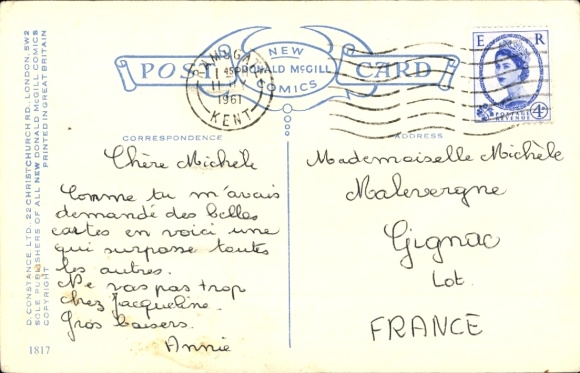 NEW
POST DONALD McGILL CARD
COMICS
RAMSGATE
1 45 PM
1961
KENT
E R
4D
POSTAGE
REVENUE
CORRESPONDENCE
ADDRESS
Chère Michèle
Comme tu m'avais
demandé des belles
cartes en voici une
qui surpasse toutes
les autres.
Ne vas pas trop
chez Jacqueline.
Gros baisers.
Annie
Mademoiselle Michèle
Malevergne
Gignac
Lot.
FRANCE
D. CONSTANCE LTD. 22 CHRISTCHURCH RD. LONDON. SW2
SOLE PUBLISHERS OF ALL NEW DONALD McGILL COMICS
COPYRIGHT PRINTED IN GREAT BRITAIN
1817